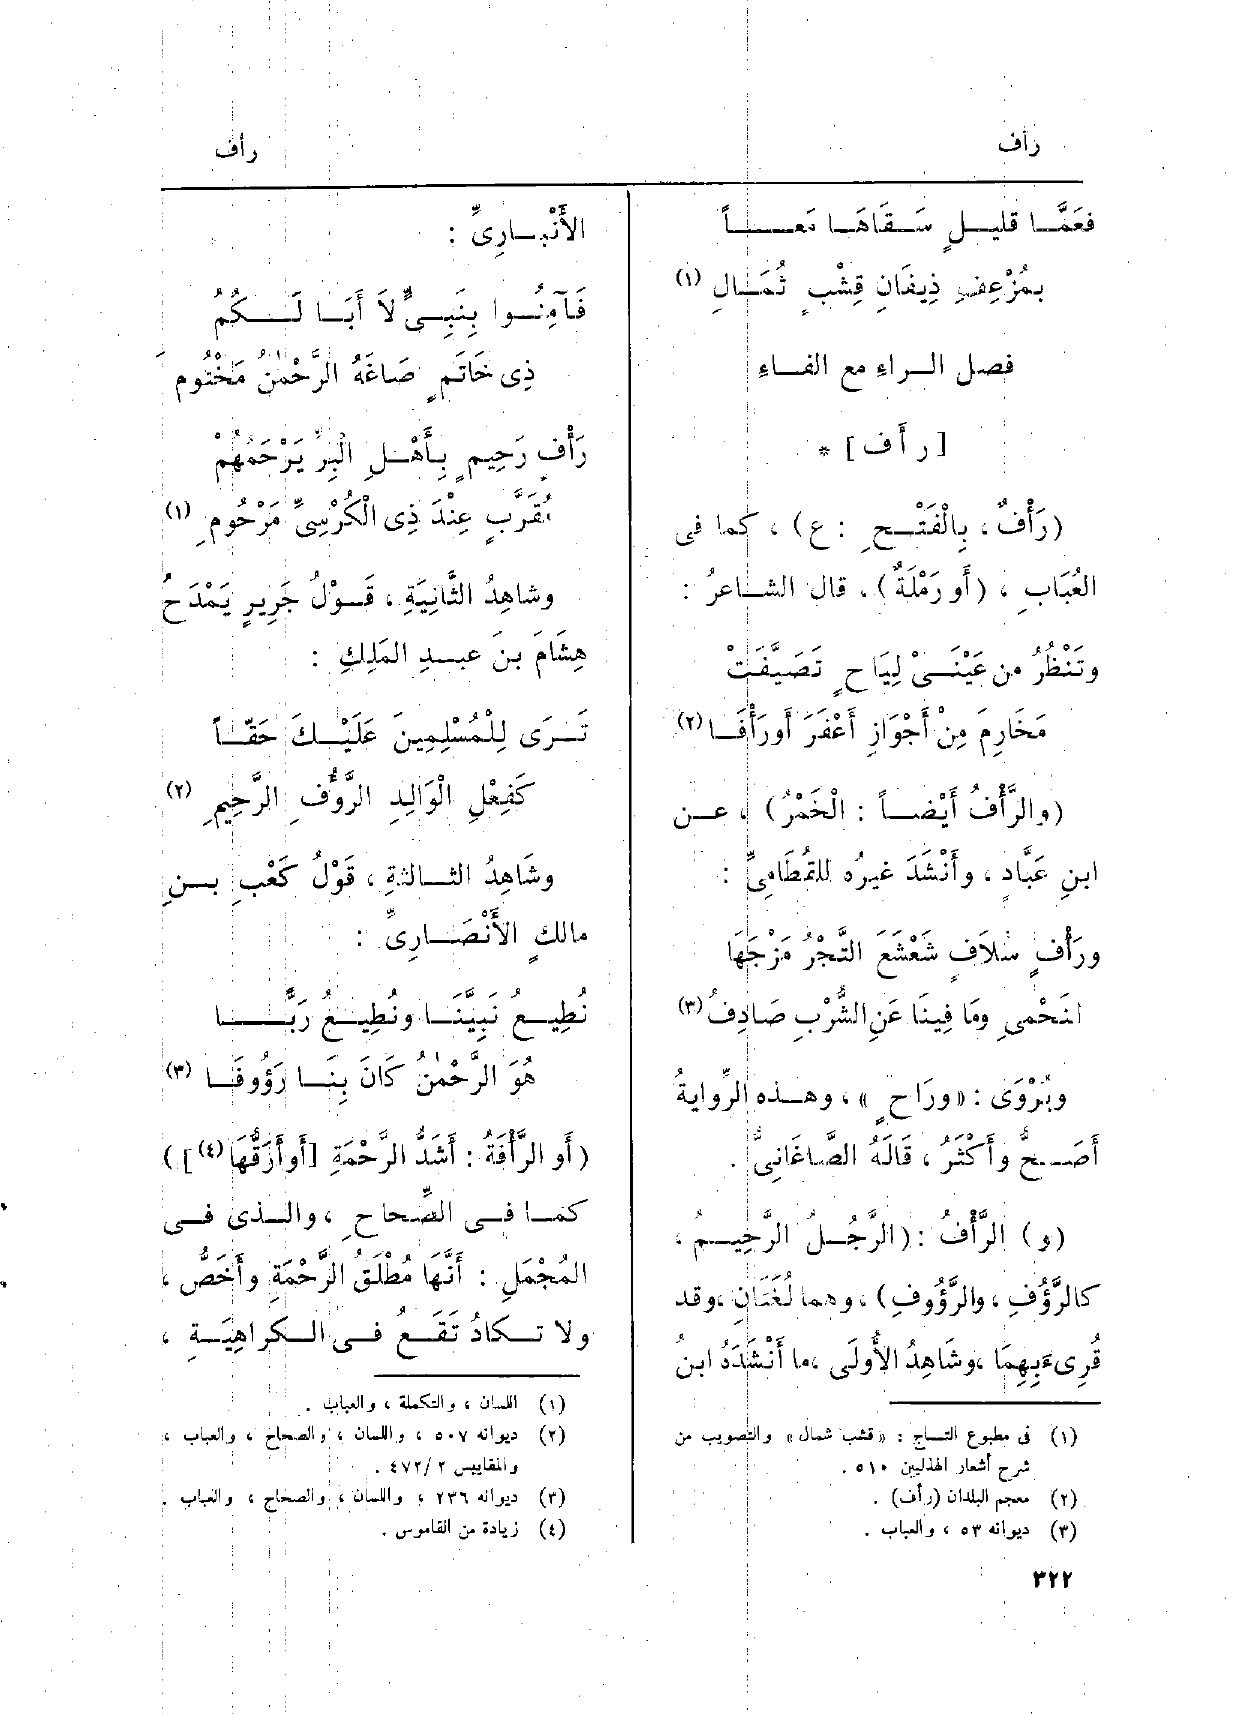 رأف
رأف
فَعَمَّا قليلٍ سَقَاهَا مَعاً
بمُزْعِفِ ذِيفَانِ قِشْبٍ ثُمَالِ (١)
فصل الراءِ مع الفاءِ
[رأف] *
(رَأْفٌ، بِالْفَتْحِ : ع) ، كما فى
العُبَابِ ، (أَو رَمْلَةٌ) ، قال الشاعرُ :
وتَنْظُرُ من عَيْنَىْ لِيَاحٍ تَصَيَّفَتْ
مَخَارِمَ مِنْ أَجْوَازِ أَعْفَرَ أَو رَأْفَا (٢)
(والرَّأْفُ أَيْضاً : الْخَمْرُ) ، عن
ابنِ عَبَّادٍ ، وأَنْشَدَ غيرُه للقُطَامِىِّ :
ورَأْفٍ سُلاَفٍ شَعْشَعَ التَّجْرُ مَزْجَهَا
لنَحْمِى ومَا فِينَا عَنِ الشُّرْبِ صَادِفُ (٣)
ويُرْوَى : «ورَاحٍ» ، وهذه الرِّوايةُ
أَصَحُّ وأَكْثَرُ ، قَالَهُ الصَّاغَانِىُّ .
(و) الرَّأْفُ : (الرَّجُلُ الرَّحِيمُ ،
كالرَّؤُفِ ، والرَّؤُوفِ) ، وهما لُغَتَانِ ، وقد
قُرِىءَ بِهِمَا ، وشَاهِدُ الأُولَى ، ما أَنْشَدَهُ ابنُ
(١) فى مطبوع التاج : «قشب شمال» والتصويب من
شرح أشعار الهذليين ٥١٠ .
(٢) معجم البلدان (رأف) .
(٣) ديوانه ٥٣ ، والعباب .
٣٢٢
الأَنْبارِىِّ :
فَآمِنُوا بِنَبِىٍّ لاَ أَبَا لَكُمُ
ذِى خَاتَمٍ صَاغَهُ الرَّحْمٰنُ مَخْتُومِ
رَأْفٍ رَحِيمٍ بِأَهْلِ الْبِرِّ يَرْحَمُهُمْ
مُقَرَّبٍ عِنْدَ ذِى الْكُرْسِىِّ مَرْحُومِ (١)
وشاهِدُ الثَّانِيَةِ ، قَوْلُ جَرِيرٍ يَمْدَحُ
هِشَامَ بنَ عبدِ المَلِكِ :
تَرَى لِلْمُسْلِمِينَ عَلَيْكَ حَقّاً
كَفِعْلِ الْوَالِدِ الرَّؤُفِ الرَّحِيمِ (٢)
وشَاهِدُ الثالثةِ ، قَوْلُ كَعْبِ بنِ
مالكٍ الأَنْصَارِىِّ :
نُطِيعُ نَبِيَّنَا ونُطِيعُ رَبًّا
هُوَ الرَّحْمٰنُ كَانَ بِنَا رَؤُوفَا (٣)
(أَو الرَّأْفَةُ : أَشَدُّ الرَّحْمَةِ [أَو أَرَقُّهَا (٤)])
كما فى الصِّحاحِ ، والذى فى
المُجْمَلِ : أَنَّهَا مُطْلَقُ الرَّحْمَةِ وأَخَصُّ ،
ولا تكادُ تَقَعُ فى الكراهِيَةِ ،
(١) اللسان ، والتكملة ، والعباب .
(٢) ديوانه ٥٠٧ ، واللسان ، والصحاح ، والعباب ،
والمقاييس ٢/ ٤٧٢ .
(٣) ديوانه ٢٣٦ ، واللسان ، والصحاح ، والعباب .
(٤) زيادة من القاموس .